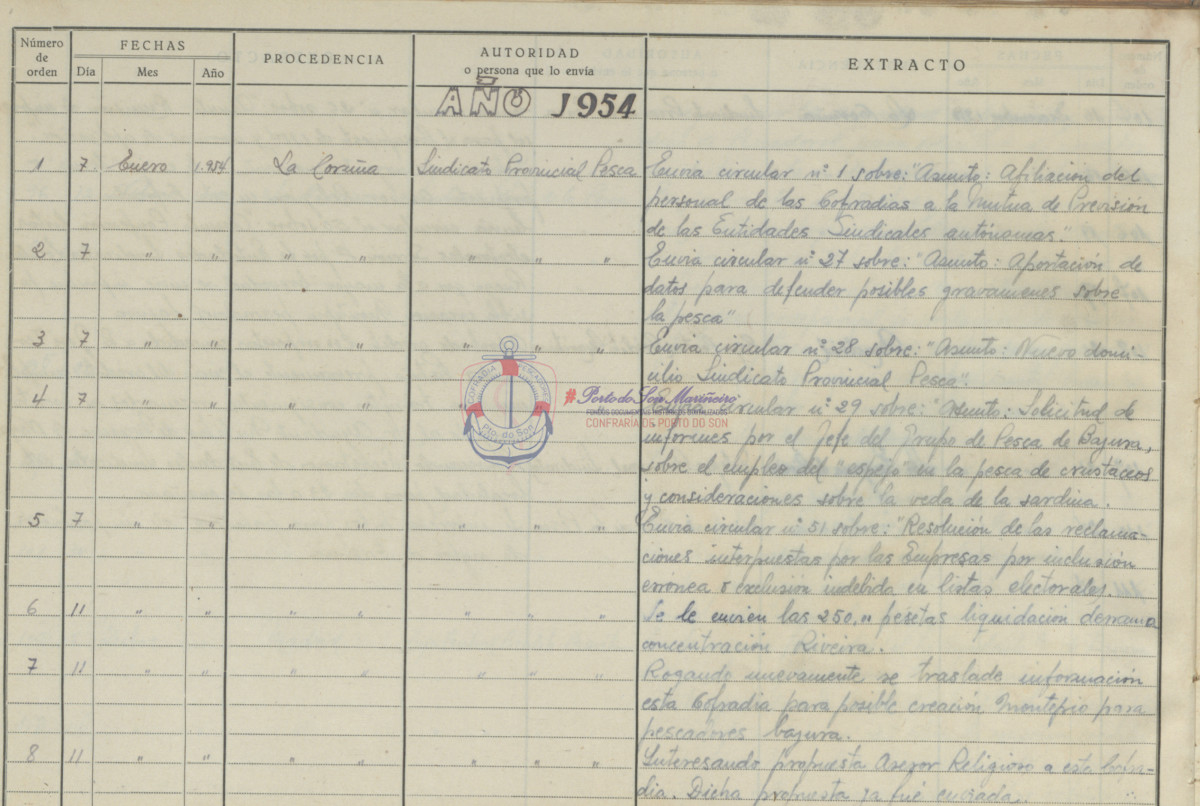 Número de orden | FECHAS | PROCEDENCIA | AUTORIDAD | EXTRACTO
Día | Mes | Año | o persona que lo envía
AÑO 1954
1 7. Enero 1.954 La Coruña Sindicato Provincial Pesca Envia circular nº 1 sobre: "Asunto: Afiliación del
personal de las Cofradias a la Mutua de Previsión
de las Entidades Sindicales autónomas."
2 7 " " " " " " " Envia circular nº 27 sobre: "Asunto: Aportación de
datos para defender posibles gravamenes sobre
la pesca"
3 7 " " " " " " " Envia circular nº 28 sobre: "Asunto: Nuevo domi-
cilio Sindicato Provincial Pesca".
4 7 " " " " circular nº 29 sobre: "Asunto: Solicitud de
informes por el Jefe del Grupo de Pesca de Bajura,
sobre el empleo del "espejo" en la pesca de crustáceos
y consideraciones sobre la veda de la sardina.
5 7 " " " " " " " Envia circular nº 51 sobre: "Resolución de las reclama-
ciones interpuestas por las Empresas por inclusión
errónea o exclusión indebida en listas electorales.
6 11 " " " " " " " Se le envien las 250,,, pesetas liquidación derrama
concentración Riveira.
7 11 " " " " " " " Rogando nuevamente se traslade información
esta Cofradia para posible creación Montepio para
pescadores bajura.
8 11 " " " " " " " Interesando propuesta Asesor Religioso a esta Cofra-
dia. Dicha propuesta ya fué enviada.
COFRADIA PESCADORES
Pto. do Son
#Porto do Son Mariñeiro
FONDOS DOCUMENTAIS HISTÓRICOS DIGITALIZADOS
CONFRARÍA DE PORTO DO SON